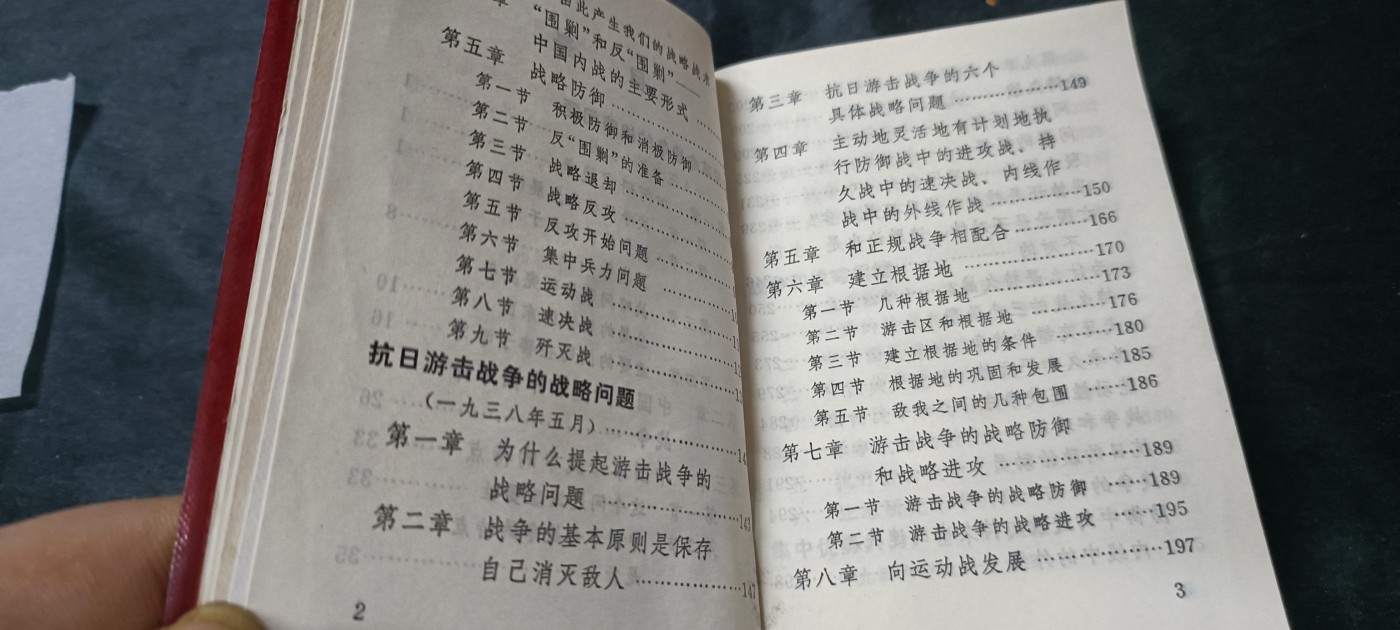 此产生我们的战略战术
“围剿”和反“围剿”——
中国内战的主要形式
第五章 战略防御
第一节 积极防御和消极防御
第二节 反“围剿”的准备
第三节 战略退却
第四节 战略反攻
第五节 反攻开始问题
第六节 集中兵力问题
第七节 运动战
第八节 速决战
第九节 歼灭战
抗日游击战争的战略问题
(一九三八年五月)
第一章 为什么提起游击战争的
战略问题 143
第二章 战争的基本原则是保存
自己消灭敌人 147
2
第三章 抗日游击战争的六个
具体战略问题 149
第四章 主动地灵活地有计划地执
行防御战中的进攻战、持
久战中的速决战、内线作
战中的外线作战 150
第五章 和正规战争相配合 166
第六章 建立根据地 170
第一节 几种根据地 173
第二节 游击区和根据地 176
第三节 建立根据地的条件 180
第四节 根据地的巩固和发展 185
第五节 敌我之间的几种包围 186
第七章 游击战争的战略防御
和战略进攻 189
第一节 游击战争的战略防御 189
第二节 游击战争的战略进攻 195
第八章 向运动战发展 197
3